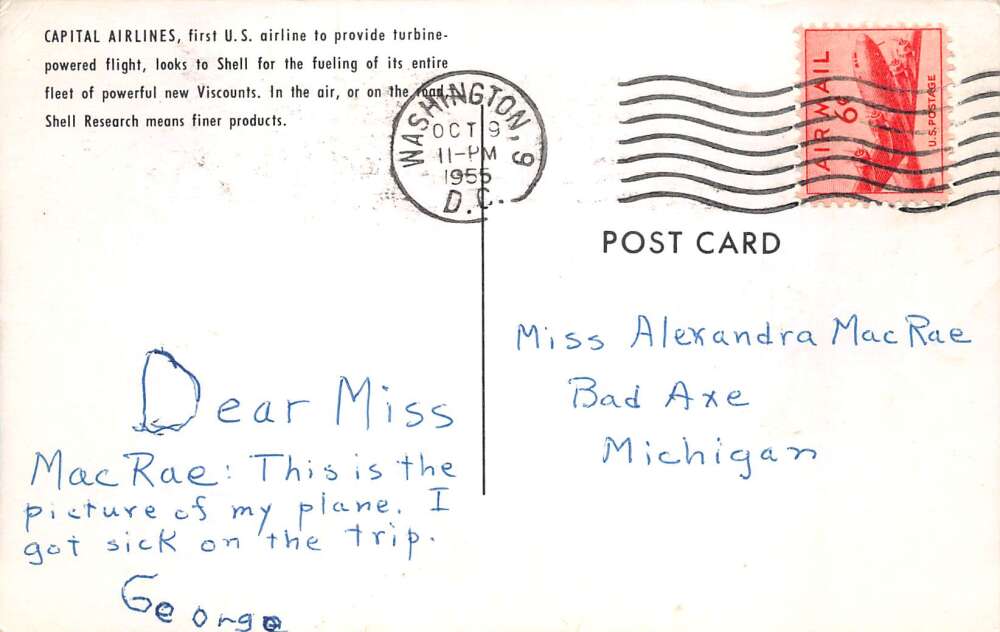 CAPITAL AIRLINES, first U.S. airline to provide turbine-
powered flight, looks to Shell for the fueling of its entire
fleet of powerful new Viscounts. In the air, or on the road,
Shell Research means finer products.
WASHINGTON, 9
OCT 9
11-PM
1955
D.C.
AIRMAIL
6¢
U.S. POSTAGE
POST CARD
Miss Alexandra MacRae
Bad Axe
Michigan
Dear Miss
MacRae: This is the
picture of my plane. I
got sick on the trip.
George